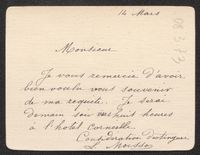 14 Mars
Monsieur
Je vous remercie d'avoir
bien voulu vous souvenir
de ma requete. Je serai
demain soir huit heures
à l'hotel Corneille
Consideration distinguée